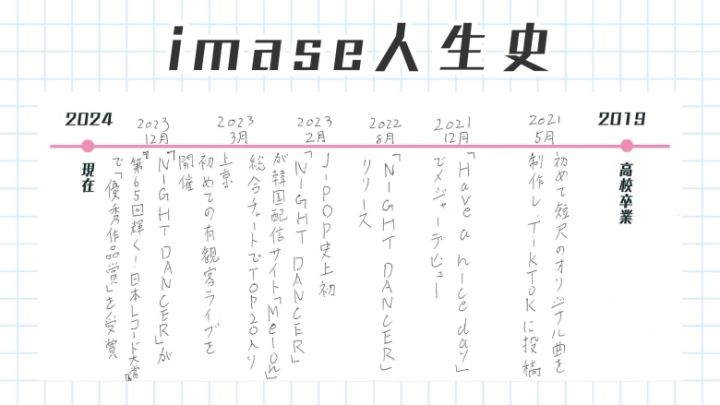 imase人生史
2019
高校卒業
2021
5月
初めて短尺のオリジナル曲を
制作し、TikTokに投稿
2021
12月
「Have a nice day」
でメジャーデビュー
2022
8月
「NIGHT DANCER」
リリース
2023
2月
J-POP史上初
「NIGHT DANCER」
が韓国配信サイト「Melon」
総合チャートでTOP20入り
2023
3月
上京
初めての有観客ライブを
開催
2023
12月
「NIGHT DANCER」が
『第65回輝く!日本レコード大賞』
で「優秀作品賞」を受賞
2024
現在